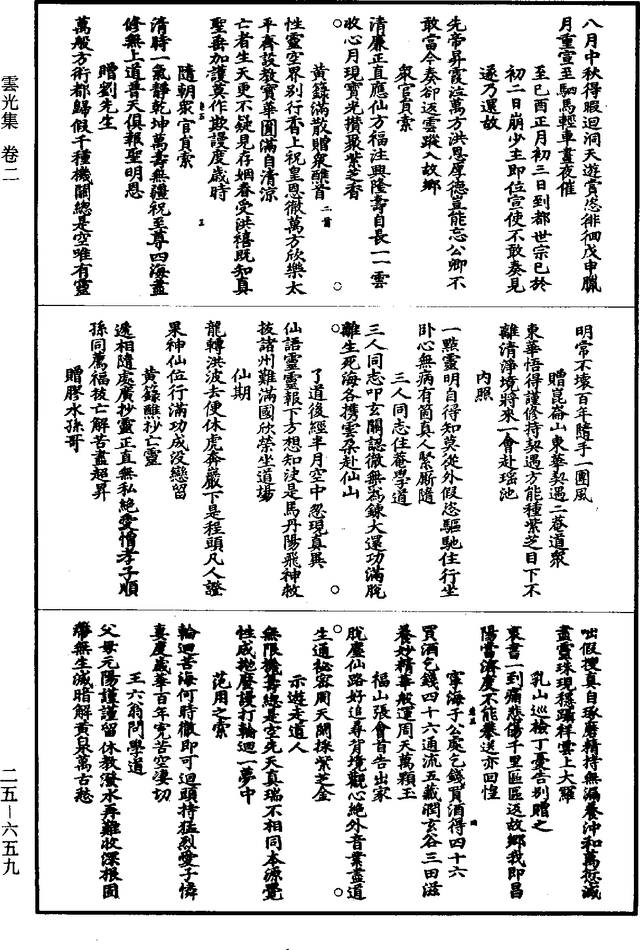 八月中秋得暇迴洞天遊賞恣徘徊戊申臘
月重宣至駟馬輕車晝夜催
至己酉正月初三日到都世宗已於
初二日崩少主即位宣使不敢奏見
遂乃還故
先帝昇霞泣萬方洪恩厚德豈能忘公卿不
敢當今奏却返雲蹤入故鄉
衆官員索
清廉正直應仙方福注興隆壽自長一一雲
收心月現寶光攢聚紫芝香
黃籙滿散贈衆醮首二首
性靈空界別行香上祝皇恩徹萬方欣樂太
平齊設教寶華圓滿自清涼
亡者生天更不疑見存姻眷受洪禧既知真
聖垂加護莫作欺謾度歲時
隨朝衆官員索
清時一氣靜乾坤萬壽無疆祝至尊四海盡
修無上道普天俱報聖明恩
贈劉先生
萬般方術都歸假千種機關總是空唯有靈
明常不壞百年隨手一團風
贈崑崙山東華契遇二菴道衆
東華悟得謹修持契遇方能種紫芝目下不
離清淨境將來一會赴瑶池
內照
一點靈明自得知莫從外假恣驅馳住行坐
臥心無病有箇真人緊厮隨
三人同志住菴學道
三人同志叩玄關認徹無為鍊大還功滿脫
離生死海各携雲朵赴仙山
了道後經半月空中忽現真異
仙語靈靈報下方想知決是馬丹陽飛神救
拔諸州難滿國欣榮坐道場
仙期
龍轉洪波去便休虎奔巖下是程頭凡人證
果神仙位行滿功成沒戀留
黃籙醮抄亡靈
遞相隨處廣抄靈正直無私絕愛憎孝子順
孫同薦福拔亡解苦盡超昇
贈膠水孫哥
咄假搜真自琢磨精持無漏養沖和萬愆滅
盡靈珠現穩躡祥雲上大羅
乳山巡檢丁憂告別贈之
哀書一到痛悲傷千里區區返故鄉我即昌
陽當濟度不能養送亦回惶
寧海于公處乞錢買酒得四十六
買酒乞錢四十六通流五藏潤玄谷三田滋
養妙精華般運周天萬顆玉
福山張會首告出家
脫塵仙路好追尋背境觀心絕外音業盡道
生通祕密周天闢採紫芝金
示遊走道人
無限機籌總是空先天真瑞不相同本源覺
性成抛廢謾打輪迴一夢中
范用之索
輪迴苦海何時徹即可迴頭持猛烈愛子憐
妻度歲華百年兖苦空淒切
王六翁問學道
父母元陽謹謹留休教潑水再難收深根固
蒂無生滅暗解黃泉萬古愁
雲光集 卷二
二五－六五九